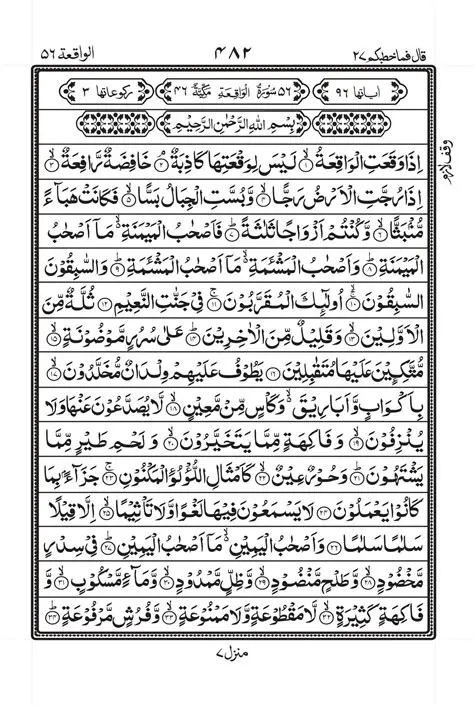 قال فما خطبكم ٢٧ ٤٨٢ الواقعة ٥٦
اٰياتها ٩٦ ٥٦ سُوْرَةُ الْوَاقِعَةِ مَكِّيَّةٌ ٤٦ ركوعاتها ٣
بِسْمِ اللّٰهِ الرَّحْمٰنِ الرَّحِيْمِ
وقف لازم
اِذَا وَقَعَتِ الْوَاقِعَةُ ۙ‏﴿۱﴾ لَيْسَ لِوَقْعَتِهَا كَاذِبَةٌ ۘ‏﴿۲﴾ خَافِضَةٌ رَّافِعَةٌ ۙ‏﴿۳﴾
اِذَا رُجَّتِ الْاَرْضُ رَجًّا ۙ‏﴿۴﴾ وَّبُسَّتِ الْجِبَالُ بَسًّا ۙ‏﴿۵﴾ فَكَانَتْ هَبَآءً
مُّنْۢبَثًّا ۙ‏﴿۶﴾ وَّكُنْتُمْ اَزْوَاجًا ثَلٰثَةً ؕ‏﴿۷﴾ فَاَصْحٰبُ الْمَيْمَنَةِ ۙ مَاۤ اَصْحٰبُ
الْمَيْمَنَةِ ؕ‏﴿۸﴾ وَاَصْحٰبُ الْمَشْـَٔمَةِ ۙ مَاۤ اَصْحٰبُ الْمَشْـَٔمَةِ ؕ‏﴿۹﴾ وَالسّٰبِقُوْنَ
السّٰبِقُوْنَ ۚۙ‏﴿۱۰﴾ اُولٰٓئِكَ الْمُقَرَّبُوْنَ ۚ‏﴿۱۱﴾ فِيْ جَنّٰتِ النَّعِيْمِ ‏﴿۱۲﴾ ثُلَّةٌ مِّنَ
الْاَوَّلِيْنَ ۙ‏﴿۱۳﴾ وَقَلِيْلٌ مِّنَ الْاٰخِرِيْنَ ؕ‏﴿۱۴﴾ عَلٰى سُرُرٍ مَّوْضُوْنَةٍ ۙ‏﴿۱۵﴾
مُّتَّكِـِٕيْنَ عَلَيْهَا مُتَقٰبِلِيْنَ ‏﴿۱۶﴾ يَطُوْفُ عَلَيْهِمْ وِلْدَانٌ مُّخَلَّدُوْنَ ۙ‏﴿۱۷﴾
بِاَكْوَابٍ وَّاَبَارِيْقَ ۙ وَكَاْسٍ مِّنْ مَّعِيْنٍ ۙ‏﴿۱۸﴾ لَّا يُصَدَّعُوْنَ عَنْهَا وَلَا
يُنْزِفُوْنَ ۙ‏﴿۱۹﴾ وَفَاكِهَةٍ مِّمَّا يَتَخَيَّرُوْنَ ۙ‏﴿۲۰﴾ وَلَحْمِ طَيْرٍ مِّمَّا
يَشْتَهُوْنَ ؕ‏﴿۲۱﴾ وَحُوْرٌ عِيْنٌ ۙ‏﴿۲۲﴾ كَاَمْثَالِ اللُّؤْلُؤِ الْمَكْنُوْنِ ۚ‏﴿۲۳﴾ جَزَآءًۢ بِمَا
كَانُوْا يَعْمَلُوْنَ ‏﴿۲۴﴾ لَا يَسْمَعُوْنَ فِيْهَا لَغْوًا وَّلَا تَاْثِيْمًا ۙ‏﴿۲۵﴾ اِلَّا قِيْلًا
سَلٰمًا سَلٰمًا ‏﴿۲۶﴾ وَاَصْحٰبُ الْيَمِيْنِ ۙ مَاۤ اَصْحٰبُ الْيَمِيْنِ ؕ‏﴿۲۷﴾ فِيْ سِدْرٍ
مَّخْضُوْدٍ ۙ‏﴿۲۸﴾ وَّطَلْحٍ مَّنْضُوْدٍ ۙ‏﴿۲۹﴾ وَّظِلٍّ مَّمْدُوْدٍ ۙ‏﴿۳۰﴾ وَّمَآءٍ مَّسْكُوْبٍ ۙ‏﴿۳۱﴾
وَّفَاكِهَةٍ كَثِيْرَةٍ ۙ‏﴿۳۲﴾ لَّا مَقْطُوْعَةٍ وَّلَا مَمْنُوْعَةٍ ۙ‏﴿۳۳﴾ وَّفُرُشٍ مَّرْفُوْعَةٍ ؕ‏﴿۳۴﴾
منزل ٧